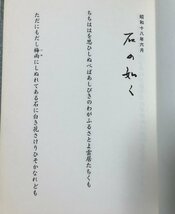 昭和十九年六月
石の如く
ちちははを思ひしぬべばあしびきのわがふるさとよ雲居たちくも
ただにもだし梅雨にしぬれてある石に白き花さけりひそかなれども